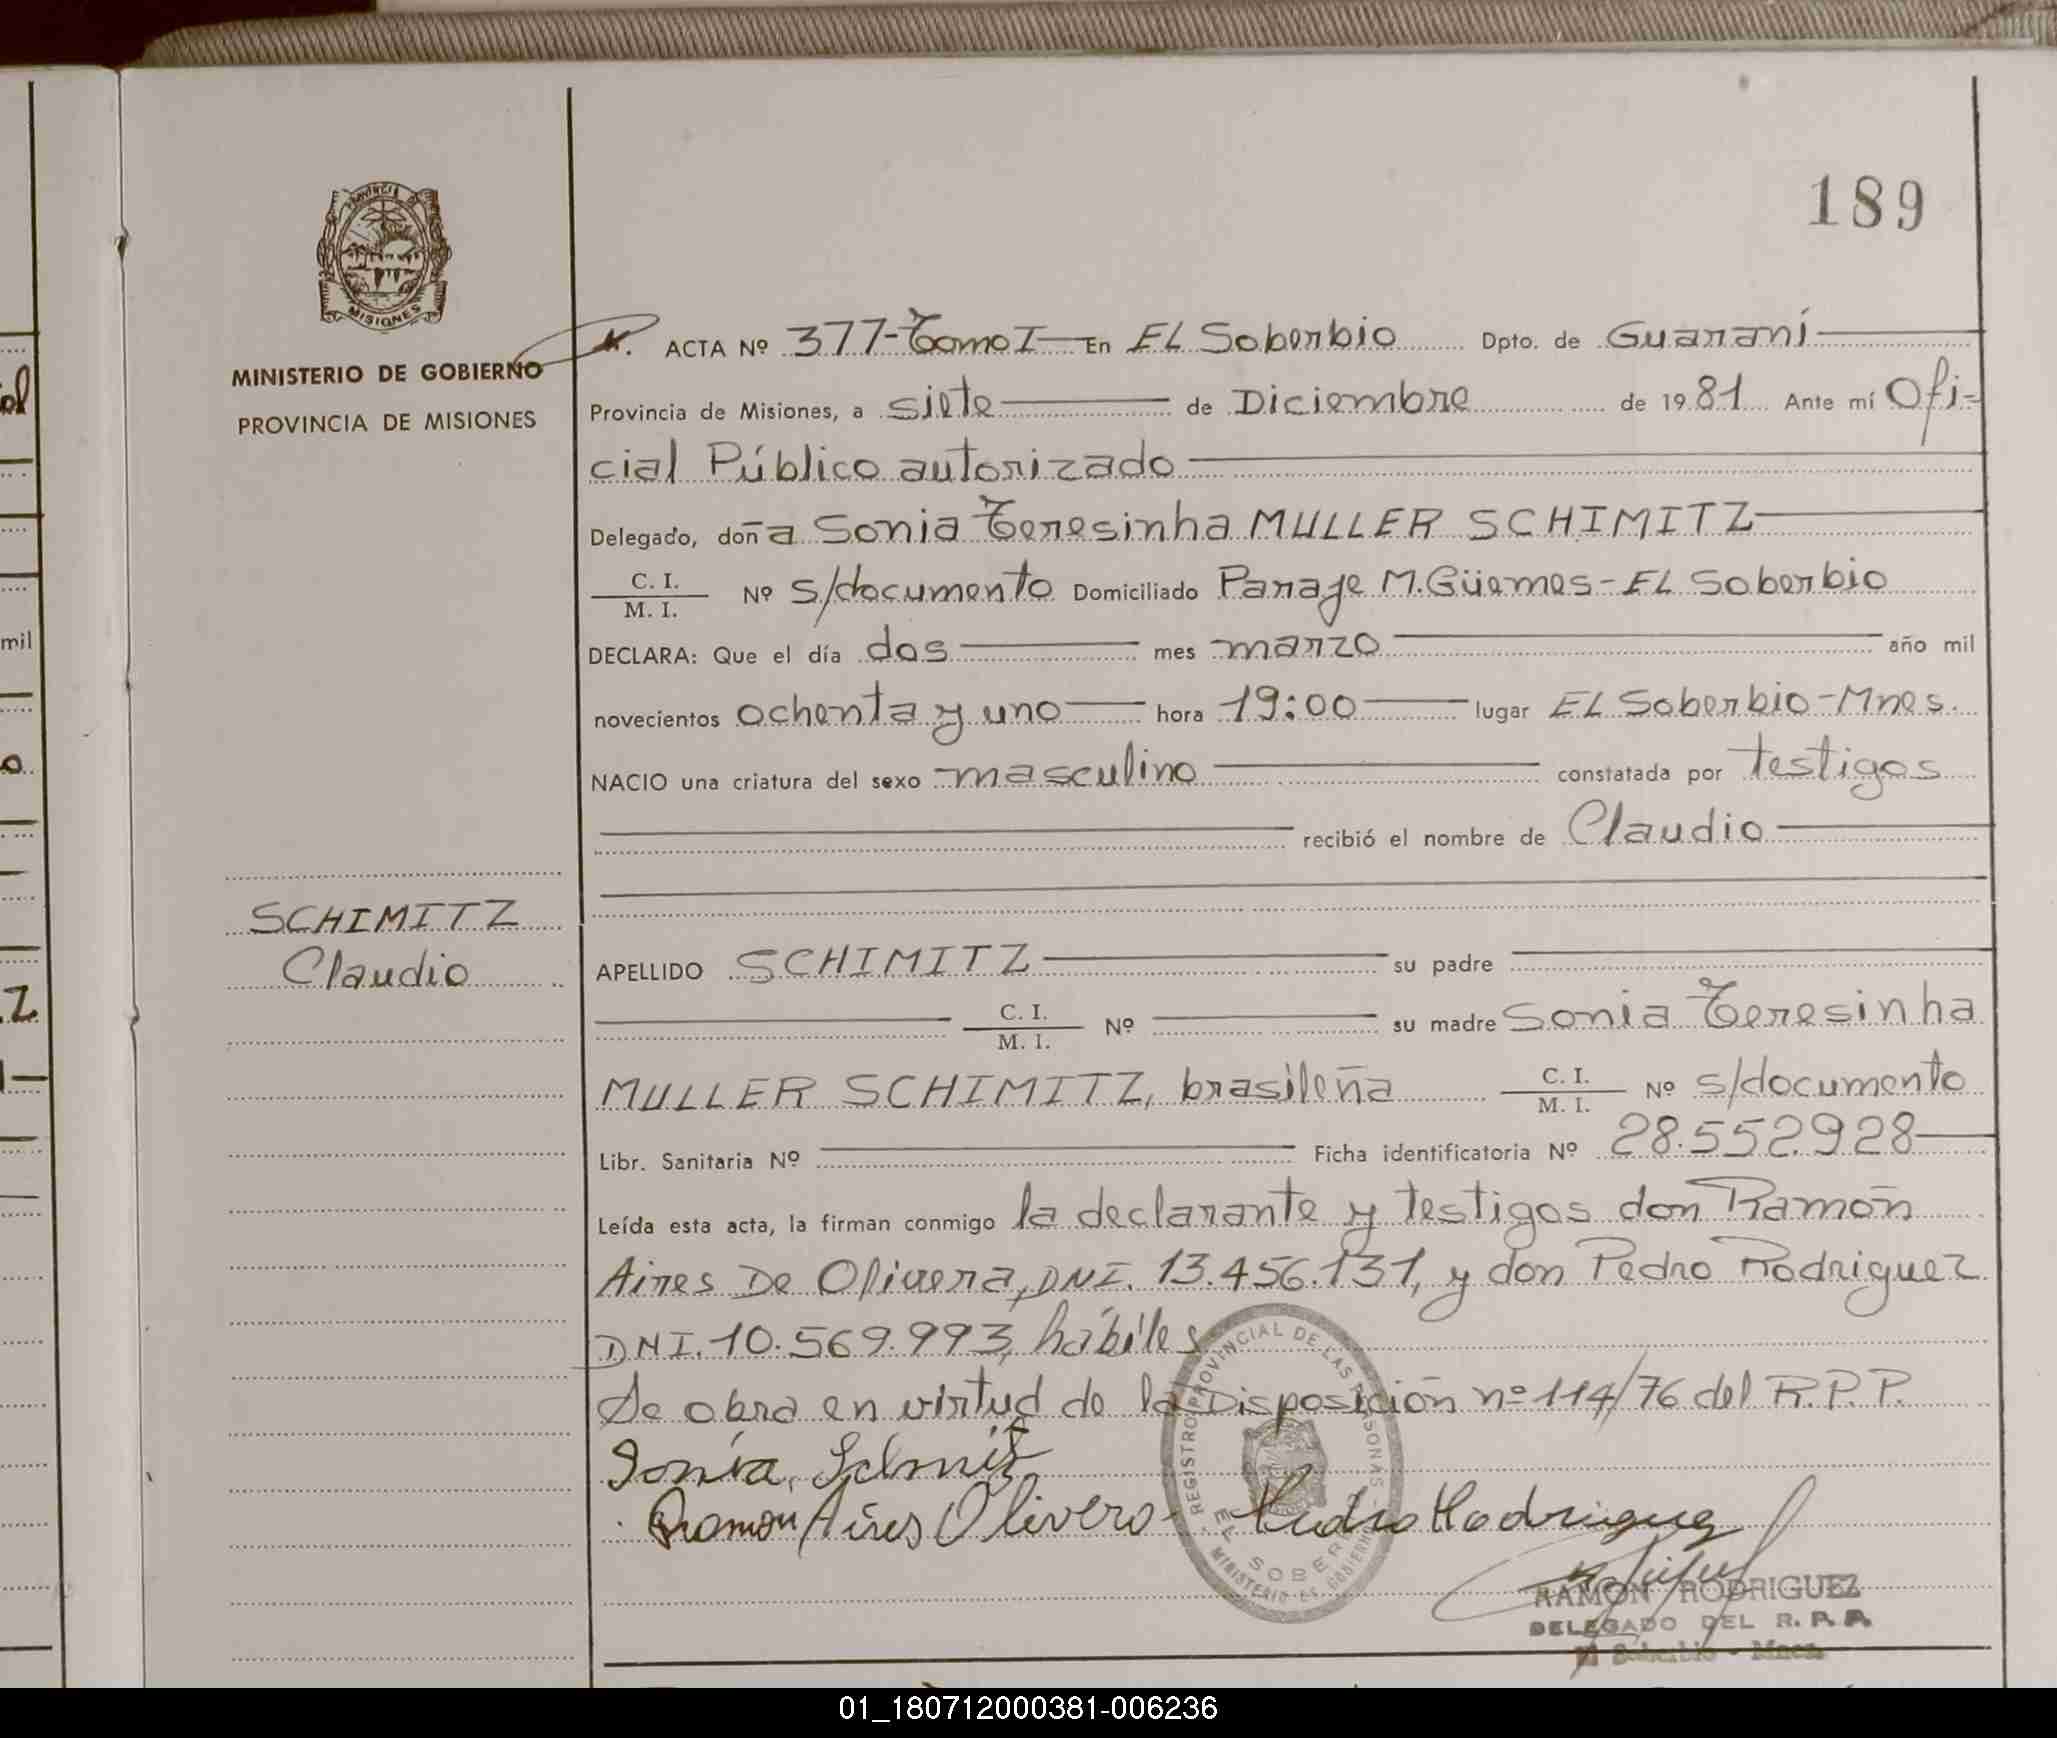 189
PROVINCIA DE
MISIONES
MINISTERIO DE GOBIERNO
PROVINCIA DE MISIONES
N. ACTA Nº 377-Tomo I En EL Soberbio Dpto. de Guaraní
Provincia de Misiones, a siete de Diciembre de 1981 Ante mí Ofi-
cial Público autorizado
Delegado, doña Sonia Teresinha MULLER SCHIMITZ
C. I.
M. I. Nº s/documento Domiciliado Paraje M. Güemes - EL Soberbio
DECLARA: Que el día dos mes marzo año mil
novecientos ochenta y uno hora 19:00 lugar EL Soberbio-Mnes.
NACIO una criatura del sexo masculino constatada por testigos
recibió el nombre de Claudio
SCHIMITZ
Claudio
APELLIDO SCHIMITZ su padre
C. I.
M. I. Nº su madre Sonia Teresinha
MULLER SCHIMITZ, brasileña C. I.
M. I. Nº s/documento
Libr. Sanitaria Nº Ficha identificatoria Nº 28.552.928
Leída esta acta, la firman conmigo la declarante y testigos don Ramón
Aires De Olivera, DNI. 13.456.131, y don Pedro Rodriguez
DNI. 10.569.993, hábiles
Se obra en virtud de la Disposición nº 114/76 del R.P.P.
Sonia Schmit
Ramon Aires Olivero - Pedro Rodriguez
REGISTRO PROVINCIAL DE LAS PERSONAS
EL SOBERBIO
MINISTERIO DE GOBIERNO
RAMON RODRIGUEZ
DELEGADO DEL R. P. P.
Soberbio - Mnes.
mil
01_180712000381-006236